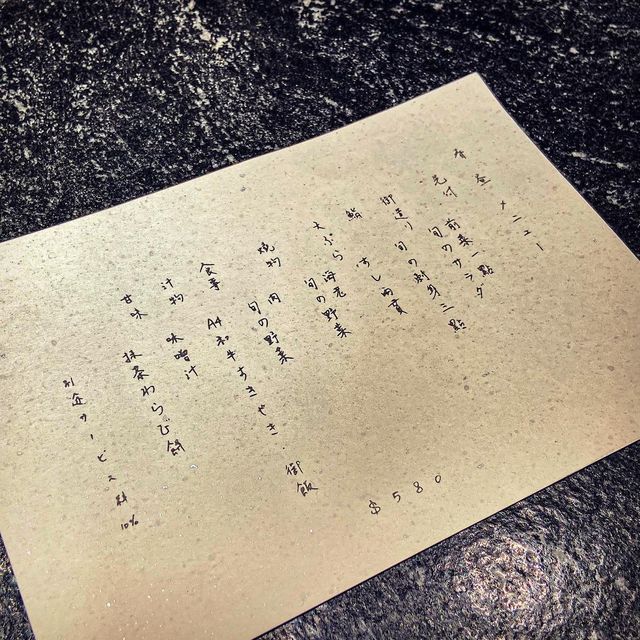 昼 メニュー
先付 前菜一點
旬のサラダ
御造り 旬の刺身三點
鮨 すし両貫
天ぷら 海老
旬の野菜
焼物 肉 旬の野菜
食事 A4和牛すきやき・御飯
汁物 味噌汁
甘味 抹茶わらび餅
別途サービス料 10%
$580